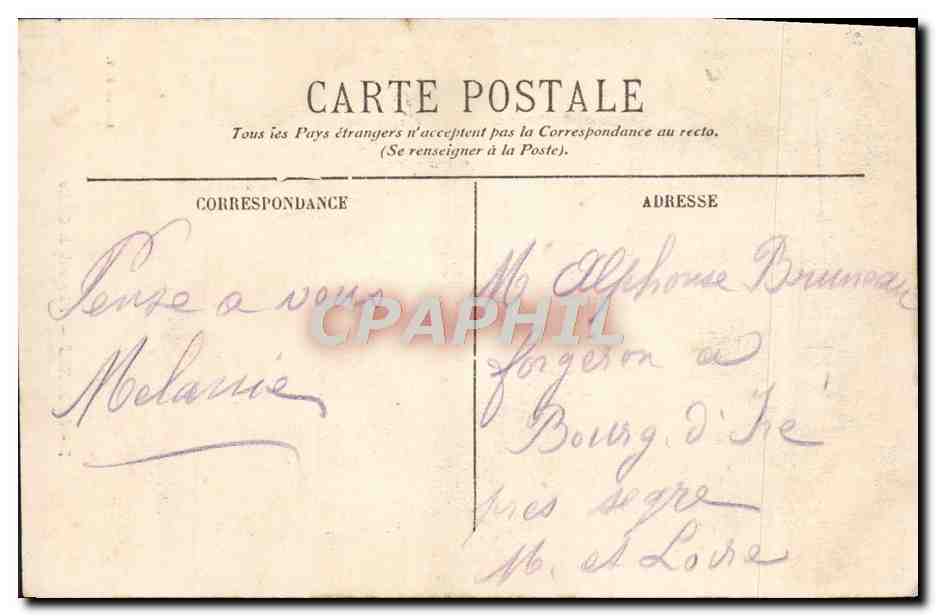 CARTE POSTALE
Tous les Pays étrangers n'acceptent pas la Correspondance au recto.
(Se renseigner à la Poste).
CORRESPONDANCE
ADRESSE
Pense a vous
Melanie
Mr Alphonse Bruneau
forgeron a
Bourg. d'Iré
près segre
M. et Loire
CPAPHIL